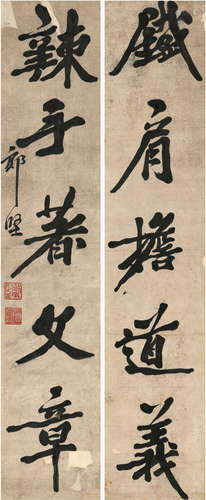 鐵肩擔道義
辣手著文章
郭堅